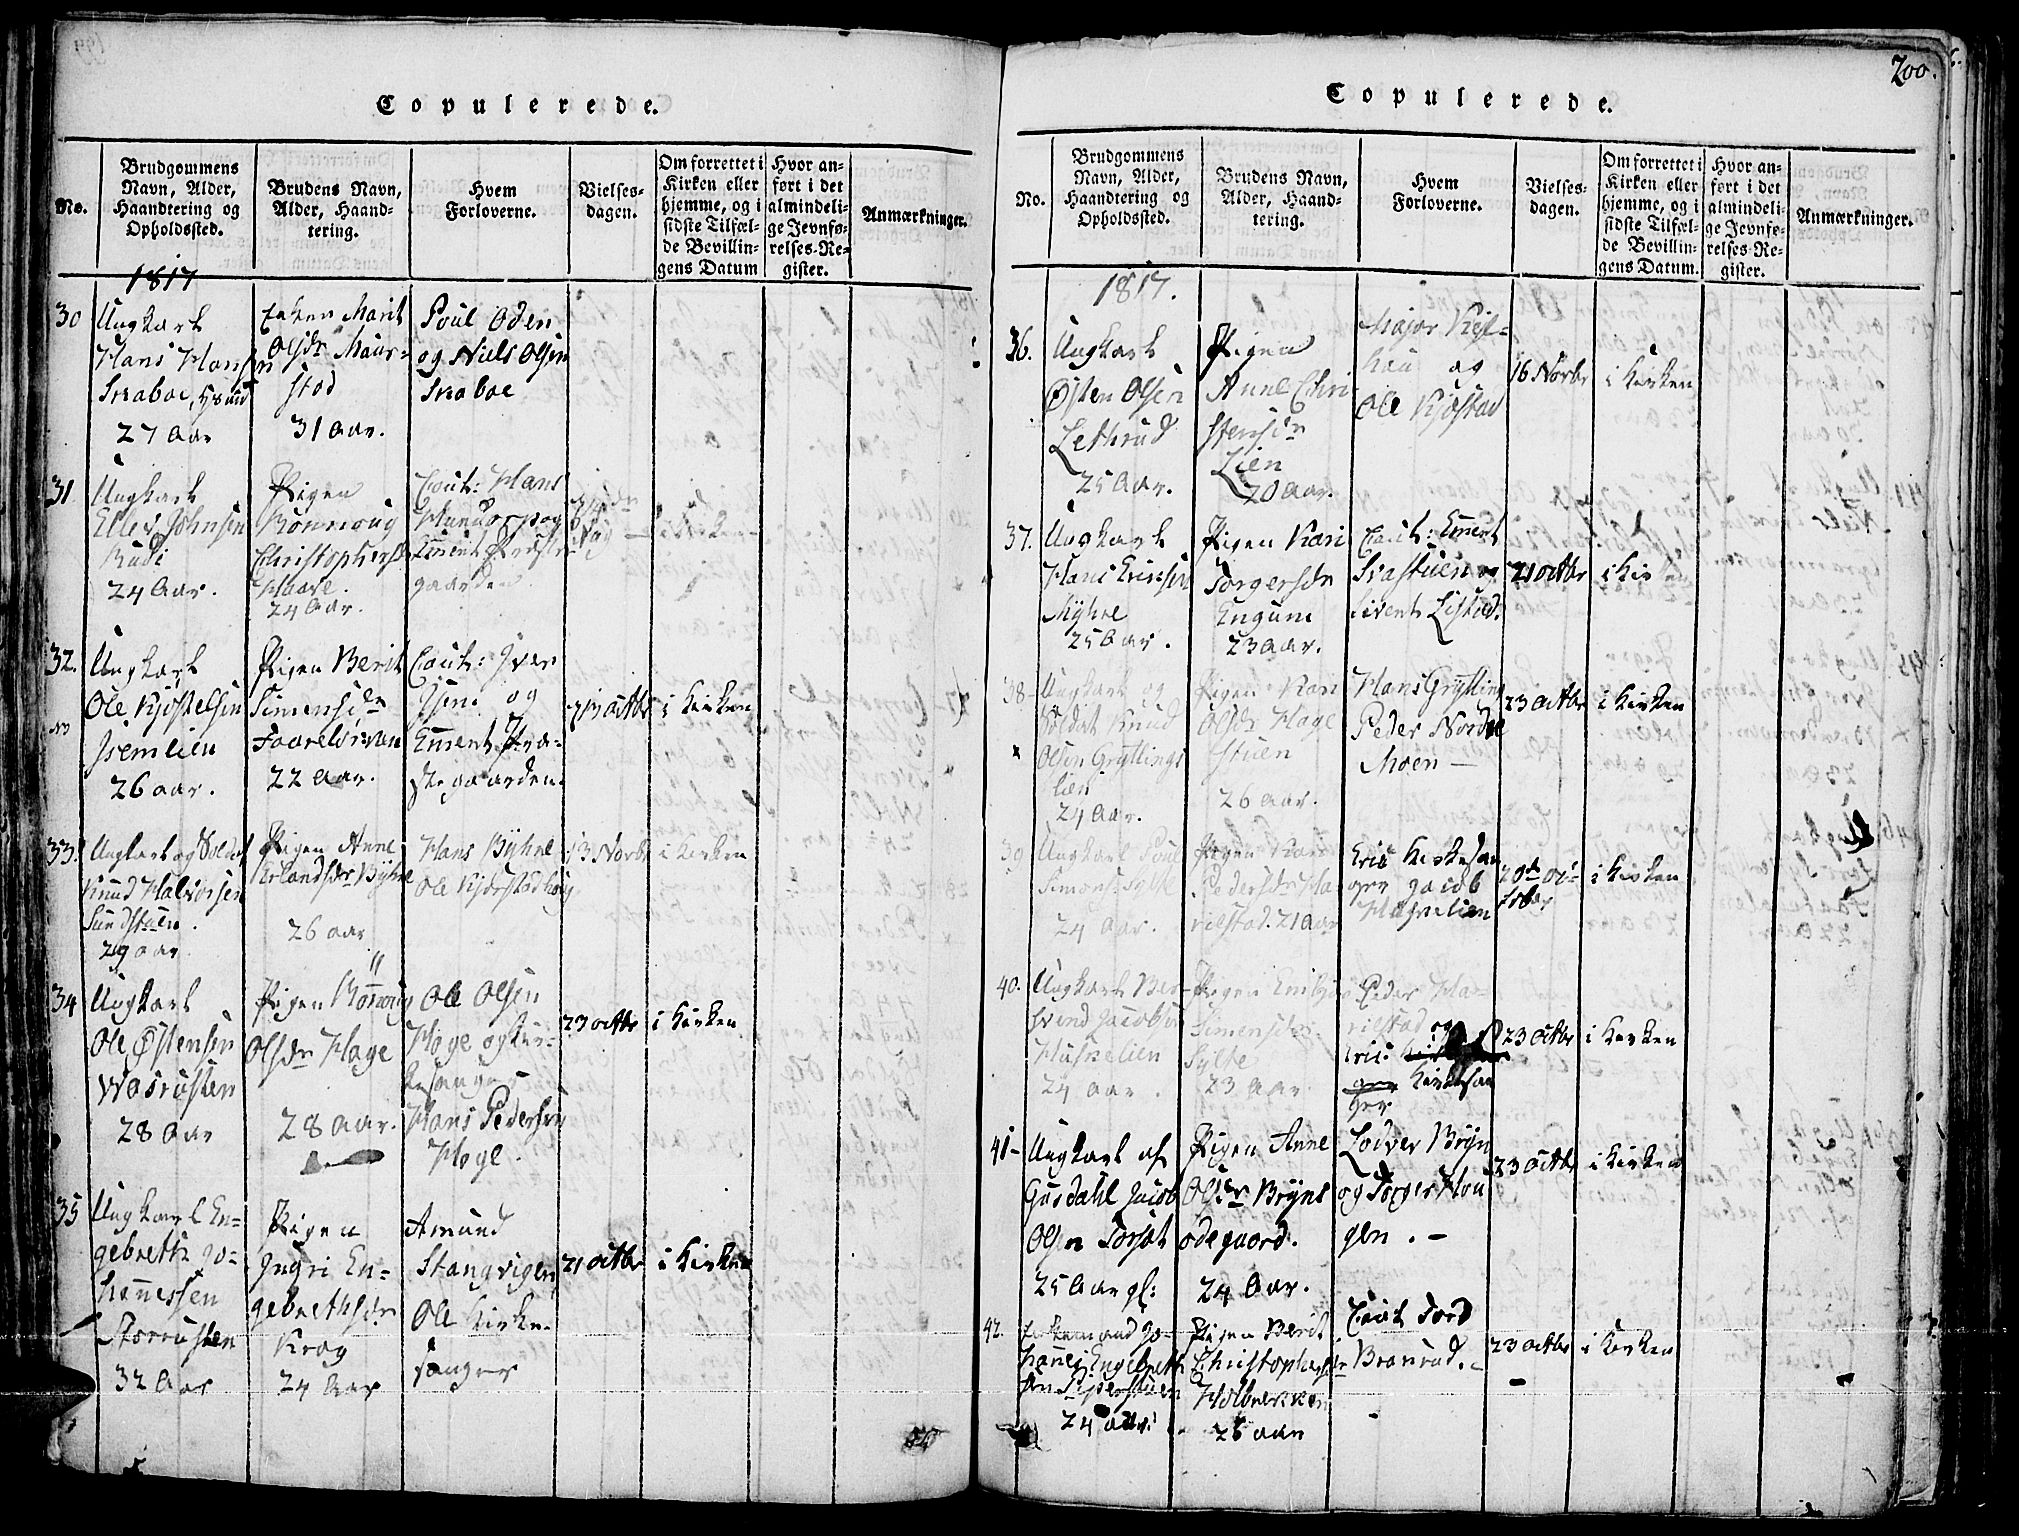 Copulerede.
No.
Brudgommens
Navn, Alder,
Haandtering og
Opholdssted.
Brudens Navn,
Alder, Haand-
tering.
Hvem
Forloverne.
Vielses-
dagen.
Om forrettet i
Kirken eller
hjemme, og i
sidste Tilfæl-
de Bevillin-
gens Datum
Hvor an-
ført i det
almindeli-
ge Jevnfø-
relses-Re-
gister.
Anmærkninger.
1817
30
Ungkarl
Hans Hansen
27 Aar
Enken Marit
Olsdr
31 Aar.
Poul Oden
og Niels Olsen
31
Ungkarl
Johnsen
Rudi
24 Aar.
Pigen
Rønnoug
Christophersdr
24 Aar.
Caut: Hans
gaarden
32.
Ungkarl
Ole
26 aar.
Pigen Berit
Simensdr
22 Aar.
Caut: Iver
og
gaarden.
octbr
i Kirken
33.
Ungkarl og Soldat
Knud Halvorsen
Sundstuen.
29 aar
Pigen Anne
Erlandsdr Byhre
26 aar
Hans Byhre
Ole
3 Novbr
i Kirken
34
Ungkarl
Ole Østensen
28 Aar
Pigen Rønnoug
Olsdr Hage
28 Aar.
Ole Olsen
Hage og
Hans Pedersen
Hage.
23 octbr
i Kirken
35
Ungkarl En-
gebreth Jo-
hannessen
Storrusten
32 Aar
Pigen
Ingri En-
gebrethsdr
Krog
24 Aar
Amund
Stangvigen
Ole Kirke-
sanger
21 octbr
i Kirken
200.
Copulerede.
No.
Brudgommens
Navn, Alder,
Haandtering og
Opholdssted.
Brudens Navn,
Alder, Haand-
tering.
Hvem
Forloverne.
Vielses-
dagen.
Om forrettet i
Kirken eller
hjemme, og i
sidste Tilfæl-
de Bevillin-
gens Datum.
Hvor an-
ført i det
almindeli-
ge Jevnfø-
relses-Re-
gister.
Anmærkninger.
1817.
36.
Ungkarl
Østen Olsen
Lethrud
25 Aar.
Pigen
Anne Chri
stensdr
Lien
20 Aar.
Major
og
Ole Kjøstad
16 Novbr
i Kirken
37.
Ungkarl
Hans Ericksen
Myhre
25 Aar.
Pigen Kari
Torgersdr
Engum
23 Aar.
Caut: Ement
og
Sivert Listad.
21 octbr
i Kirken
38-
Ungkarl og
Soldat Knud
Olsen Gryttings
lien
24 Aar.
Pigen Kari
Olsdr Hage
stuen
26 Aar.
Hans Grytting
Peder Nordre
Moen -
23 octbr
i Kirken
39
Ungkarl Poul
Simons: Sylte
24 Aar.
Pigen Kari
Pedersdr Ha
rilstad. 21 Aar
Eric Kirkesan
ger Jacob
20de oc-
tober
i Kirken
40.
Ungkarl Ber-
svend Jacobsen
24 aar.
Pigen
Simensdr
Sylte
23 Aar
Peder Ha-
rilstad og
Eric
Kirkesan
ger
23 octbr
i Kirken
41-
Ungkarl af
Gusdahl Jacob
Olsen Forsæt
25 Aar gl:
Pigen Anne
Olsdr Bryns
ødegaard.
24 Aar.
Lodver Bryn
og Torger Hou
gen. -
23 octbr
i Kirken
42.
Enkemand Jo-
hannes Engebreth
sen
24 aar:
Pigen Berit
Christophersdr
25 aar
Caut Tord
Brandrud. -
23 octbr
-
i Kirken